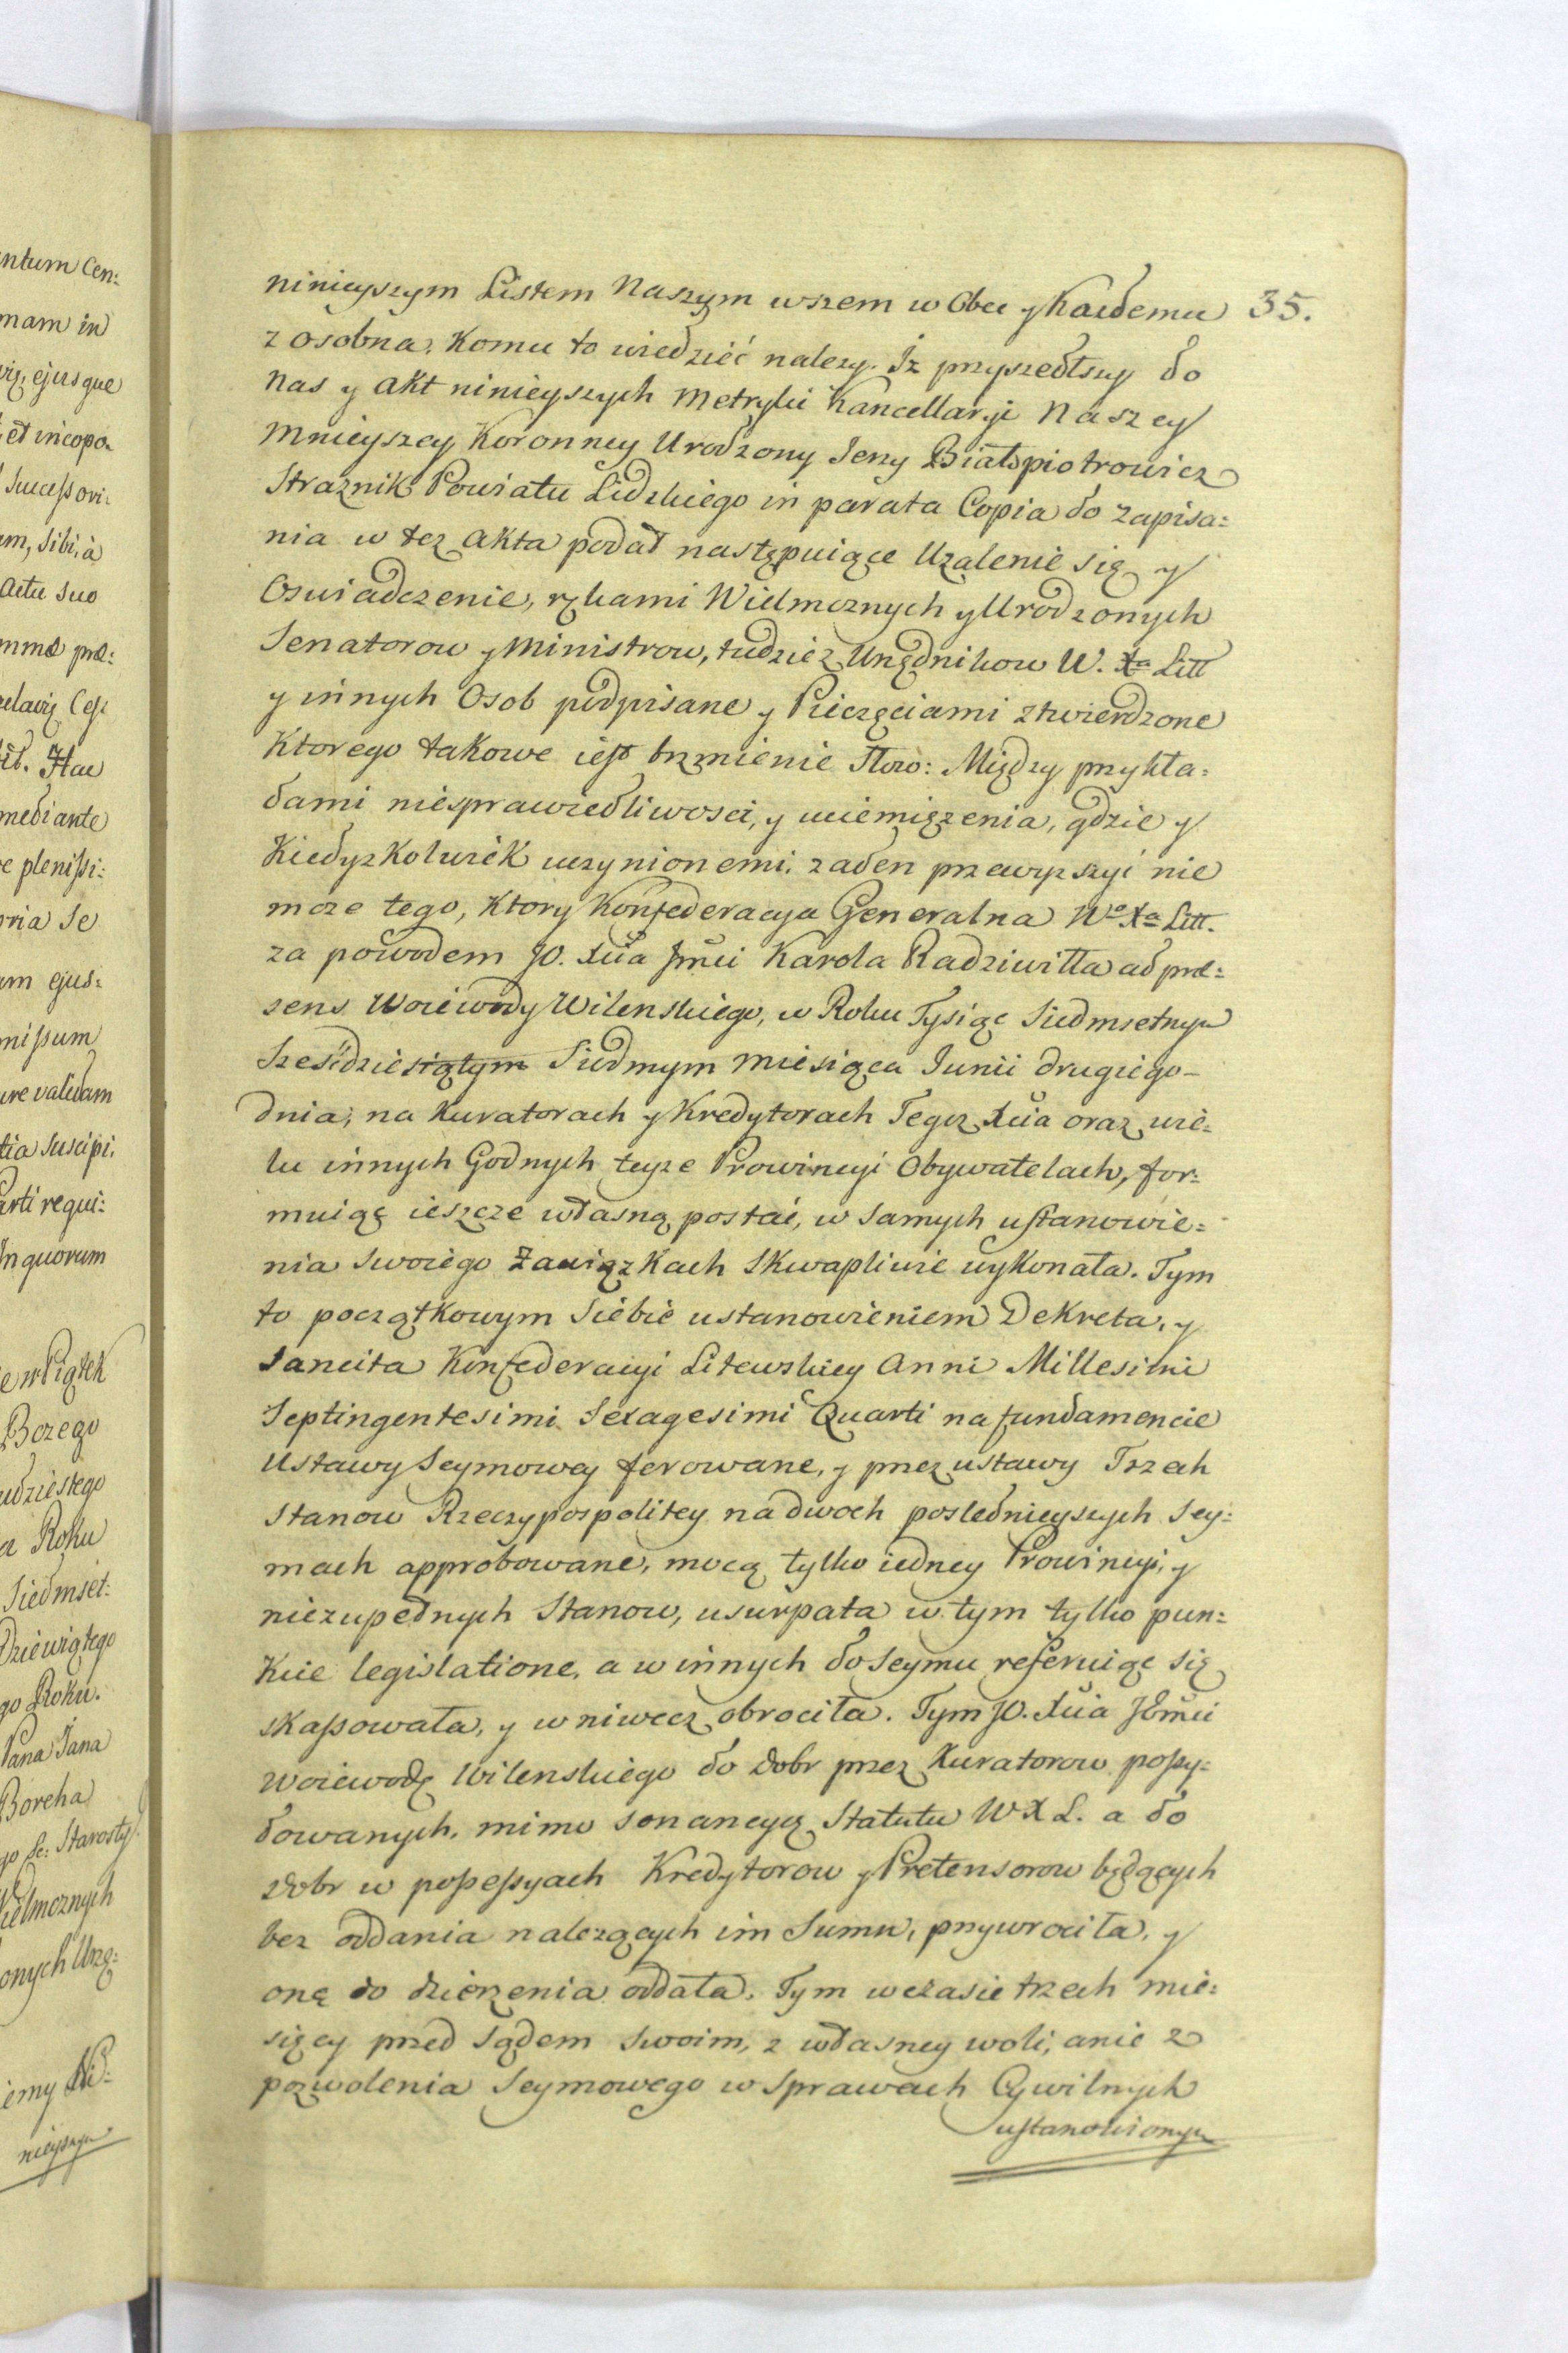 ntum Cen:
mam in
vię, ejusque
et incopo-
Successori-
um, Sibi, à
Actu suo
mmæ præ:
relavię Cess
it. Hac
mediante
e plenissi:
oria Se
um ejus:
missum
ure validam
tia suscipi.
arti requi:
In quorum
e w Piątek
Bozego
udziestego
a Roku
Siedmset:
Dziewiątego
go Roku.
Pana Jana
Boreha
go Sc: Starosty
Wielmoznych
onych Urzę:
iemy Ni:
nieyszym
35.
ninieyszym Listem Naszym wszem w Obec y Kazdemu
z osobna, Komu to wiedzieć nalezy. Iz przyszedłszy do
Nas y Akt ninieyszych Metryki Kancellaryi Naszey
Mnieyszey Koronney Urodzony Jerzy Białopiotrowicz
Straznik Powiatu Lidzkiego in parata Copia do zapisa:
nia w tez Akta podał następuiące Uzalenie się y
Oswiadczenie, rękami Wielmoznych y Urodzonych
Senatorow y Ministrow, tudziez Urzędnikow W. Xa Litt
y innych Osob podpisane y Pieczęciami ztwierdzone
Ktorego takowe iest brzmienie Słow: Między przykła:
dami niesprawiedliwosci, y uciemięzenia, gdzie y
Kiedyzkolwiek uczynionemi, zaden przewyzszyć nie
moze tego, Ktory Konfederacya Generalna Wo Xa Litt.
za powodem JO. Xcia Jmci Karola Radziwiłła ad præ:
sens Woiewody Wilenskiego, w Roku Tysiąc Siedmsetnym
Sześćdziesiątym Siedmym Miesiąca Junii drugiego
dnia, na Kuratorach y Kredytorach Tegoz Xcia oraz wie:
lu innych Godnych teyze Prowincyi Obywatelach, for:
muiąc ieszcze własną postać, w samych ustanowie:
nia swoiego Zawiązkach skwapliwie wykonała. Tym
to początkowym siebie ustanowieniem Dekreta, y
Sancita Konfederacyi Litewskiey Anni Millesimi
Septingentesimi Sexagesimi Quarti na fundamencie
Ustawy Seymowey ferowane, y przez ustawy Trzech
Stanow Rzeczypospolitey na dwoch poslednieyszych Sey:
mach approbowane, mocą tylko iedney Prowincyi, y
niezupednych Stanow, usurpata w tym tylko pun:
kcie legislatione, a w innych do Seymu referuiąc się
skassowała, y w niwecz obrociła. Tym JO. Xcia JEmci
Woiewodę Wilenskiego do Dobr przez Kuratorow possy:
dowanych, mimo sonancyą Statutu W X L. a do
Dobr w possessyach Kredytorow y Pretensorow będących
bez oddania nalezących im Summ, przywrociła, y
onę do dzierzenia oddała. Tym w czasie trzech mie:
sięcy przed Sądem swoim, z własney woli, anie z
pozwolenia Seymowego w Sprawach Cywilnych
ustanowionym